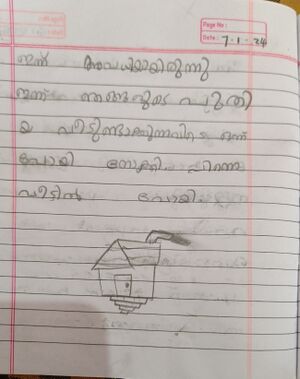 Page No :
Date : 7-1-24
ഇന്ന് അവധിയായിരുന്നു
ഇന്ന് ഞങ്ങളുടെ പുതി
യ വീടുണ്ടാക്കുന്നവിടെ ഒന്ന്
പോയി നോക്കി. പിന്നെ
വീട്ടിൽ പോയി.